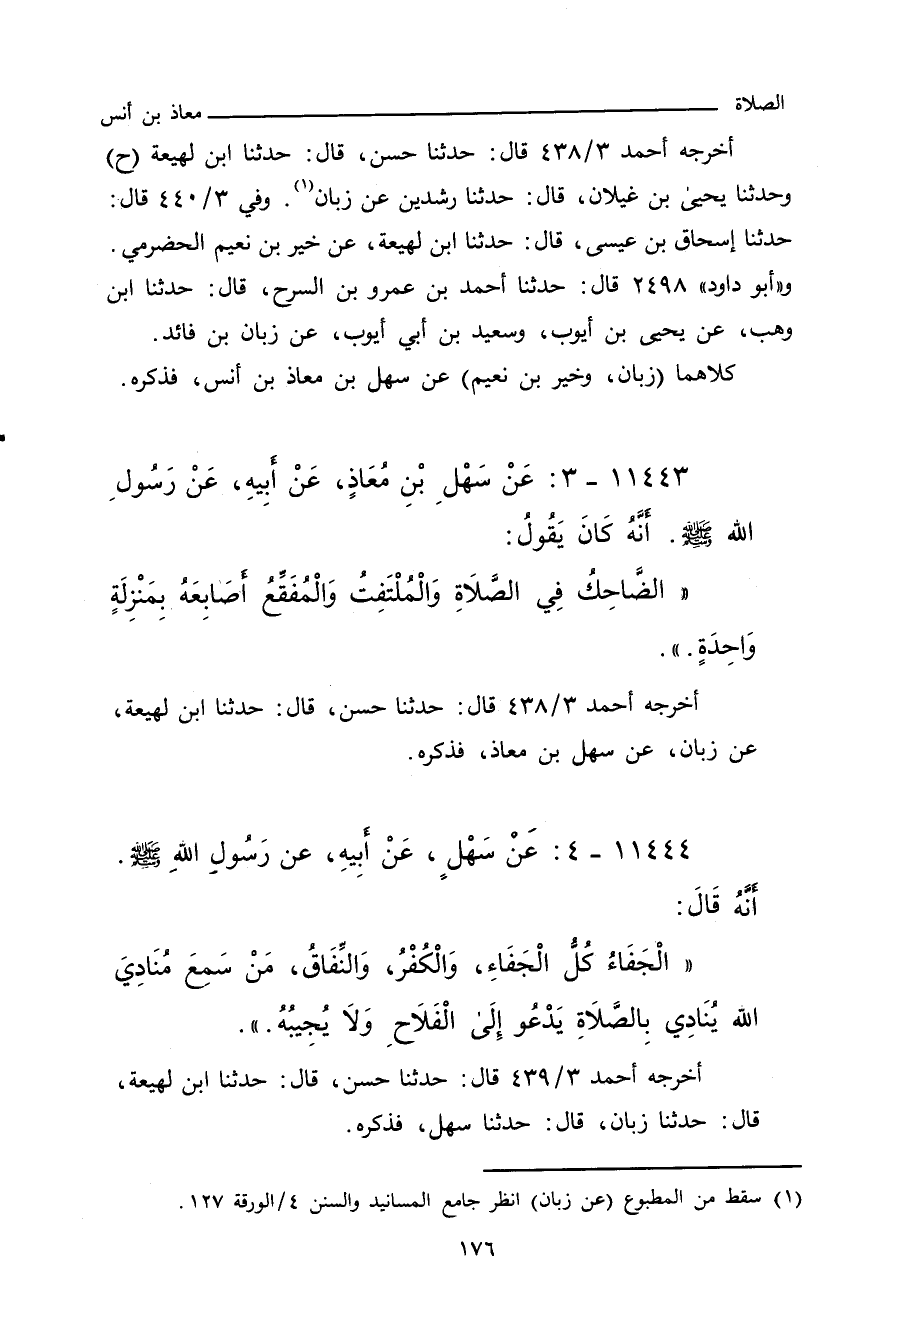 الصلاة ــــــــــــــــ معاذ بن أنس
أخرجه أحمد ٤٣٨/٣ قال: حدثنا حسن، قال: حدثنا ابن لهيعة (ح)
وحدثنا يحيىٰ بن غيلان، قال: حدثنا رشدين عن زبان(١). وفي ٤٤٠/٣ قال:
حدثنا إسحاق بن عيسى، قال: حدثنا ابن لهيعة، عن خير بن نعيم الحضرمي.
و«أبو داود» ٢٤٩٨ قال: حدثنا أحمد بن عمرو بن السرح، قال: حدثنا ابن
وهب، عن يحيى بن أيوب، وسعيد بن أبي أيوب، عن زبان بن فائد.
كلاهما (زبان، وخير بن نعيم) عن سهل بن معاذ بن أنس، فذكره.
١١٤٤٣ - ٣: عَنْ سَهْلِ بْنِ مُعَاذٍ، عَنْ أَبِيهِ، عَنْ رَسُولِ
الله ﷺ. أَنَّهُ كَانَ يَقُولُ:
« الضَّاحِكُ فِي الصَّلَاةِ وَالْمُلْتَفِتُ وَالْمُفَقِّعُ أَصَابِعَهُ بِمَنْزِلَةٍ
وَاحِدَةٍ.».
أخرجه أحمد ٤٣٨/٣ قال: حدثنا حسن، قال: حدثنا ابن لهيعة،
عن زبان، عن سهل بن معاذ، فذكره.
١١٤٤٤ - ٤: عَنْ سَهْلٍ، عَنْ أَبِيهِ، عن رَسُولِ اللهِ ﷺ.
أَنَّهُ قَالَ:
« الْجَفَاءُ كُلُّ الْجَفَاءِ، وَالْكُفْرُ، وَالنِّفَاقُ، مَنْ سَمِعَ مُنَادِيَ
الله يُنَادِي بِالصَّلَاةِ يَدْعُو إِلَىٰ الْفَلَاحِ وَلَا يُجِيبُهُ.».
أخرجه أحمد ٤٣٩/٣ قال: حدثنا حسن، قال: حدثنا ابن لهيعة،
قال: حدثنا زبان، قال: حدثنا سهل، فذكره.
(١) سقط من المطبوع (عن زبان) انظر جامع المسانيد والسنن ٤/الورقة ١٢٧.
١٧٦